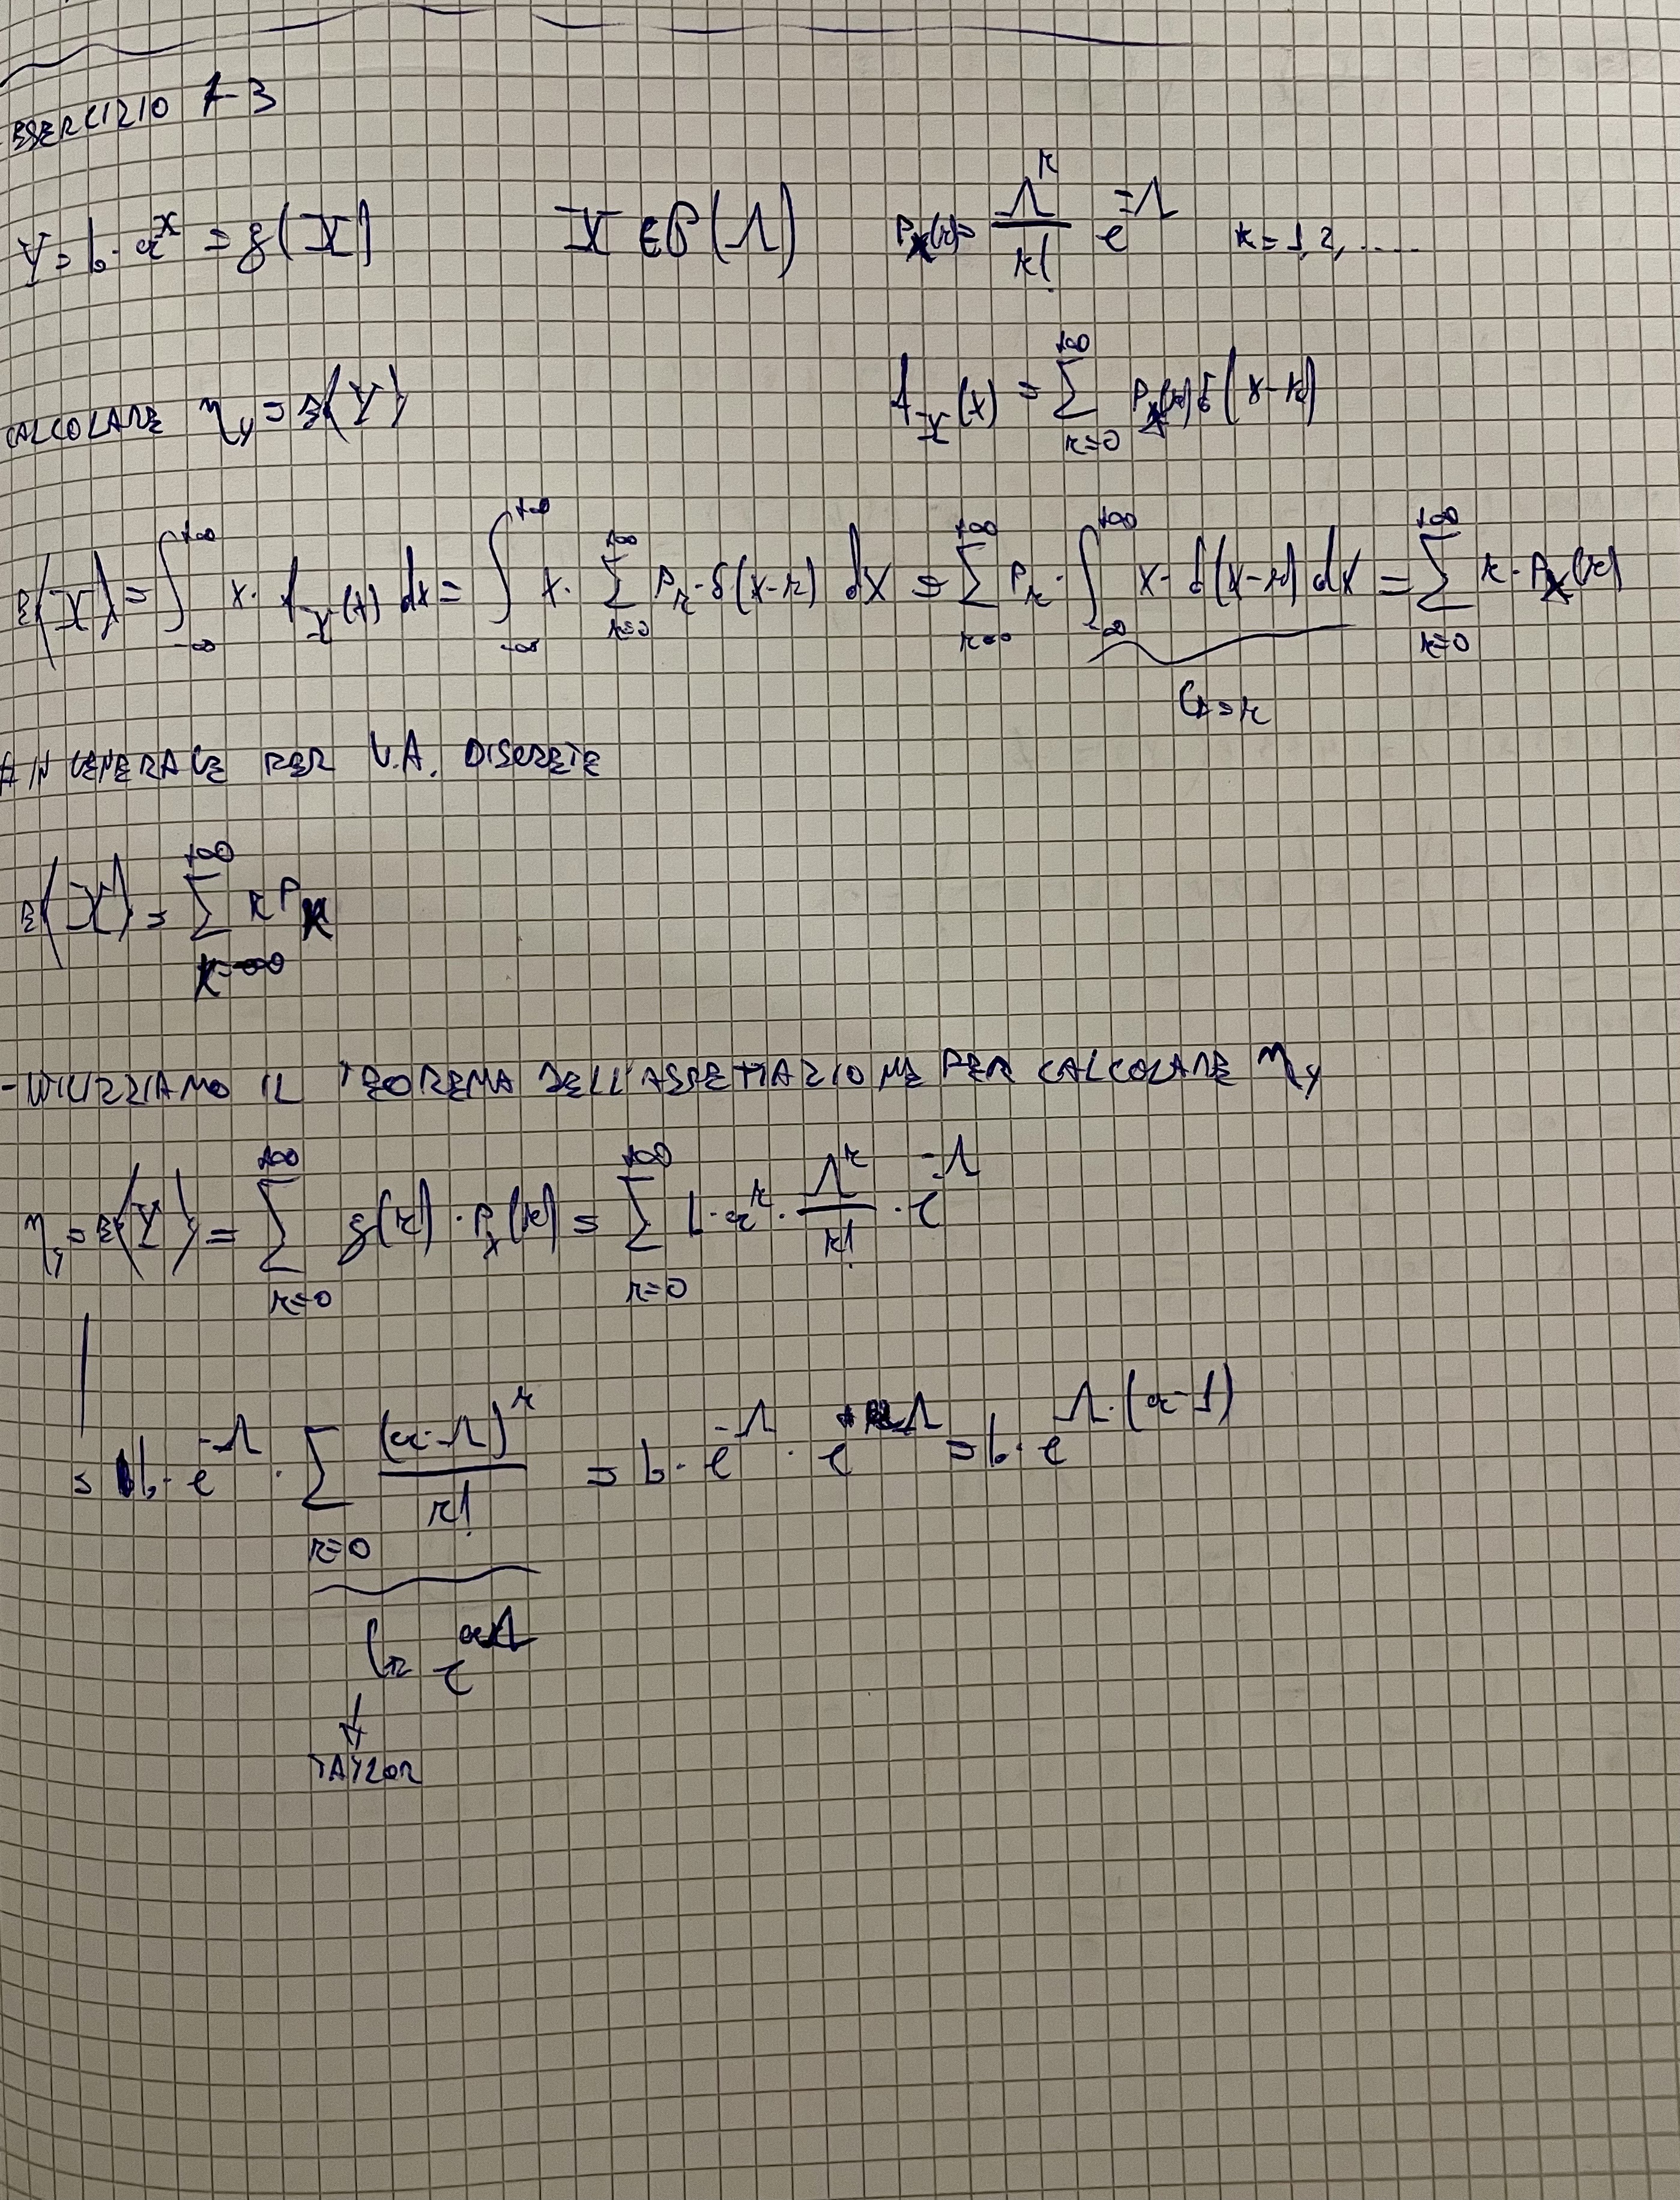 ESERCIZIO 1-3
Y = b · a^X = g(X)    X ∈ P(Λ)    P_X(k) = Λ^k / k! e^-Λ    k = 1, 2, .....
CALCOLARE η_y = E{Y}    f_X(x) = Σ_{k=0}^{+∞} P_X(k) δ(x-k)
E{X} = ∫_{-∞}^{+∞} x · f_X(x) dx = ∫_{-∞}^{+∞} x · Σ_{k=0}^{+∞} P_k · δ(x-k) dx = Σ_{k=0}^{+∞} P_k · ∫_{-∞}^{+∞} x · δ(x-k) dx = Σ_{k=0}^{+∞} k · P_X(k)
= k
IN GENERALE PER V.A. DISCRETE
E{X} = Σ_{k=-∞}^{+∞} k P_k
- UTILIZZIAMO IL TEOREMA DELL'ASPETTAZIONE PER CALCOLARE η_y
η_y = E{Y} = Σ_{k=0}^{+∞} g(k) · P_X(k) = Σ_{k=0}^{+∞} b · a^k · Λ^k / k! · e^-Λ
= b · e^-Λ · Σ_{k=0} (a·Λ)^k / k! = b · e^-Λ · e^{aΛ} = b · e^{Λ·(a-1)}
= e^{aΛ}
↓
TAYLOR